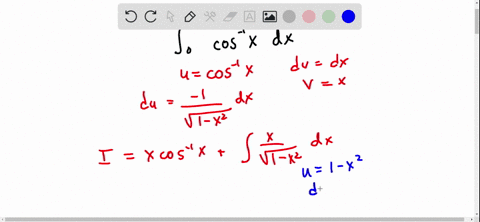 ∫₀ cos⁻¹x dx
u = cos⁻¹x dv = dx
v = x
du = -1/√(1-x²) dx
I = x cos⁻¹x + ∫ x/√(1-x²) dx
u = 1-x²
d